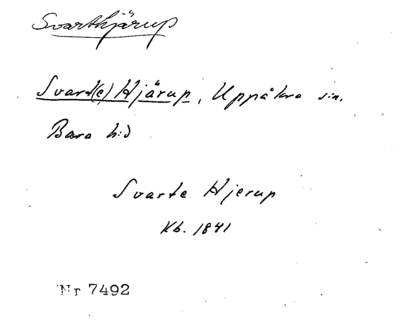 Svarthjärup
Svart(e) Hjärup, Uppåkra sn.
Bara hd
Svarte Hjerup
Kb. 1841
Nr 7492